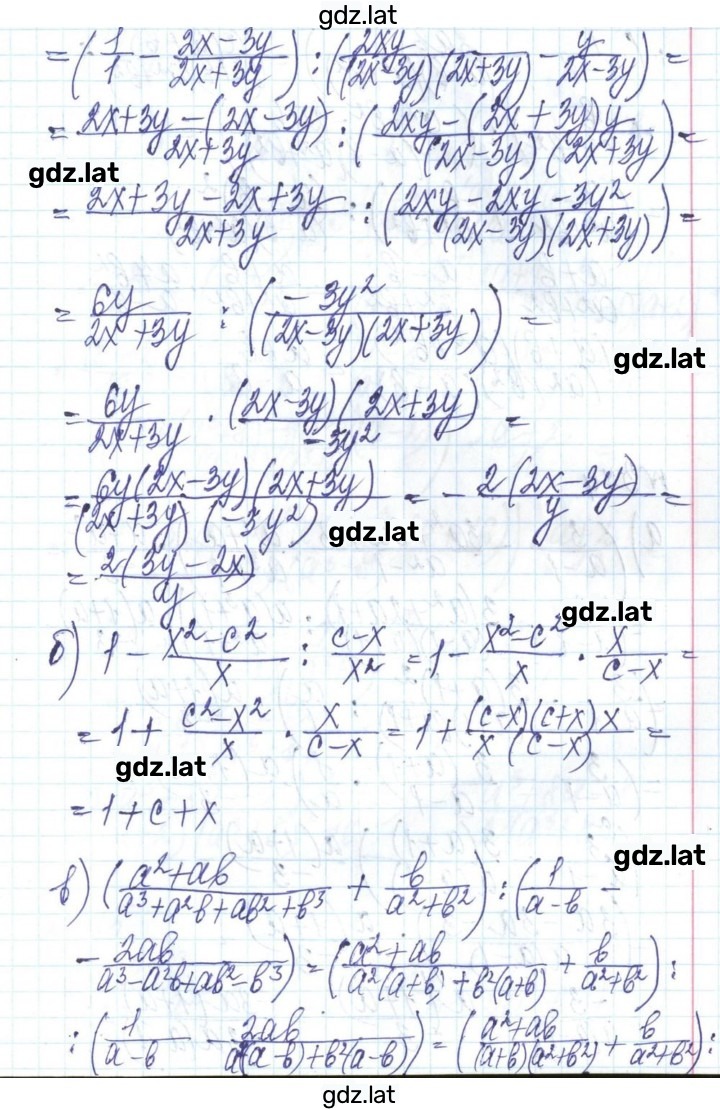 gdz.lat
= (1/1 - (2x-3y)/(2x+3y)) : (2xy/((2x-3y)(2x+3y)) - y/(2x-3y)) =
= (2x+3y-(2x-3y))/(2x+3y) : ((2xy-(2x+3y)y)/((2x-3y)(2x+3y))) =
gdz.lat
= (2x+3y-2x+3y)/(2x+3y) : ((2xy-2xy-3y²)/((2x-3y)(2x+3y))) =
= 6y/(2x+3y) : (-3y²/((2x-3y)(2x+3y))) =
gdz.lat
= 6y/(2x+3y) · ((2x-3y)(2x+3y))/(-3y²) =
= (6y(2x-3y)(2x+3y))/((2x+3y)(-3y²)) = - (2(2x-3y))/y =
gdz.lat
= (2(3y-2x))/y
gdz.lat
б) 1 - (x²-c²)/x : (c-x)/x² = 1 - (x²-c²)/x · x/(c-x) =
= 1 + (c²-x²)/x · x/(c-x) = 1 + ((c-x)(c+x)x)/(x(c-x)) =
gdz.lat
= 1+c+x
gdz.lat
в) ((a²+ab)/(a³+a²b+ab²+b³) + b/(a²+b²)) : (1/(a-b) -
- 2ab/(a³-a²b+ab²-b³)) = ((a²+ab)/(a²(a+b)+b²(a+b)) + b/(a²+b²)) :
: (1/(a-b) - 2ab/(a²(a-b)+b²(a-b))) = ((a²+ab)/((a+b)(a²+b²)) + b/(a²+b²)) :
gdz.lat